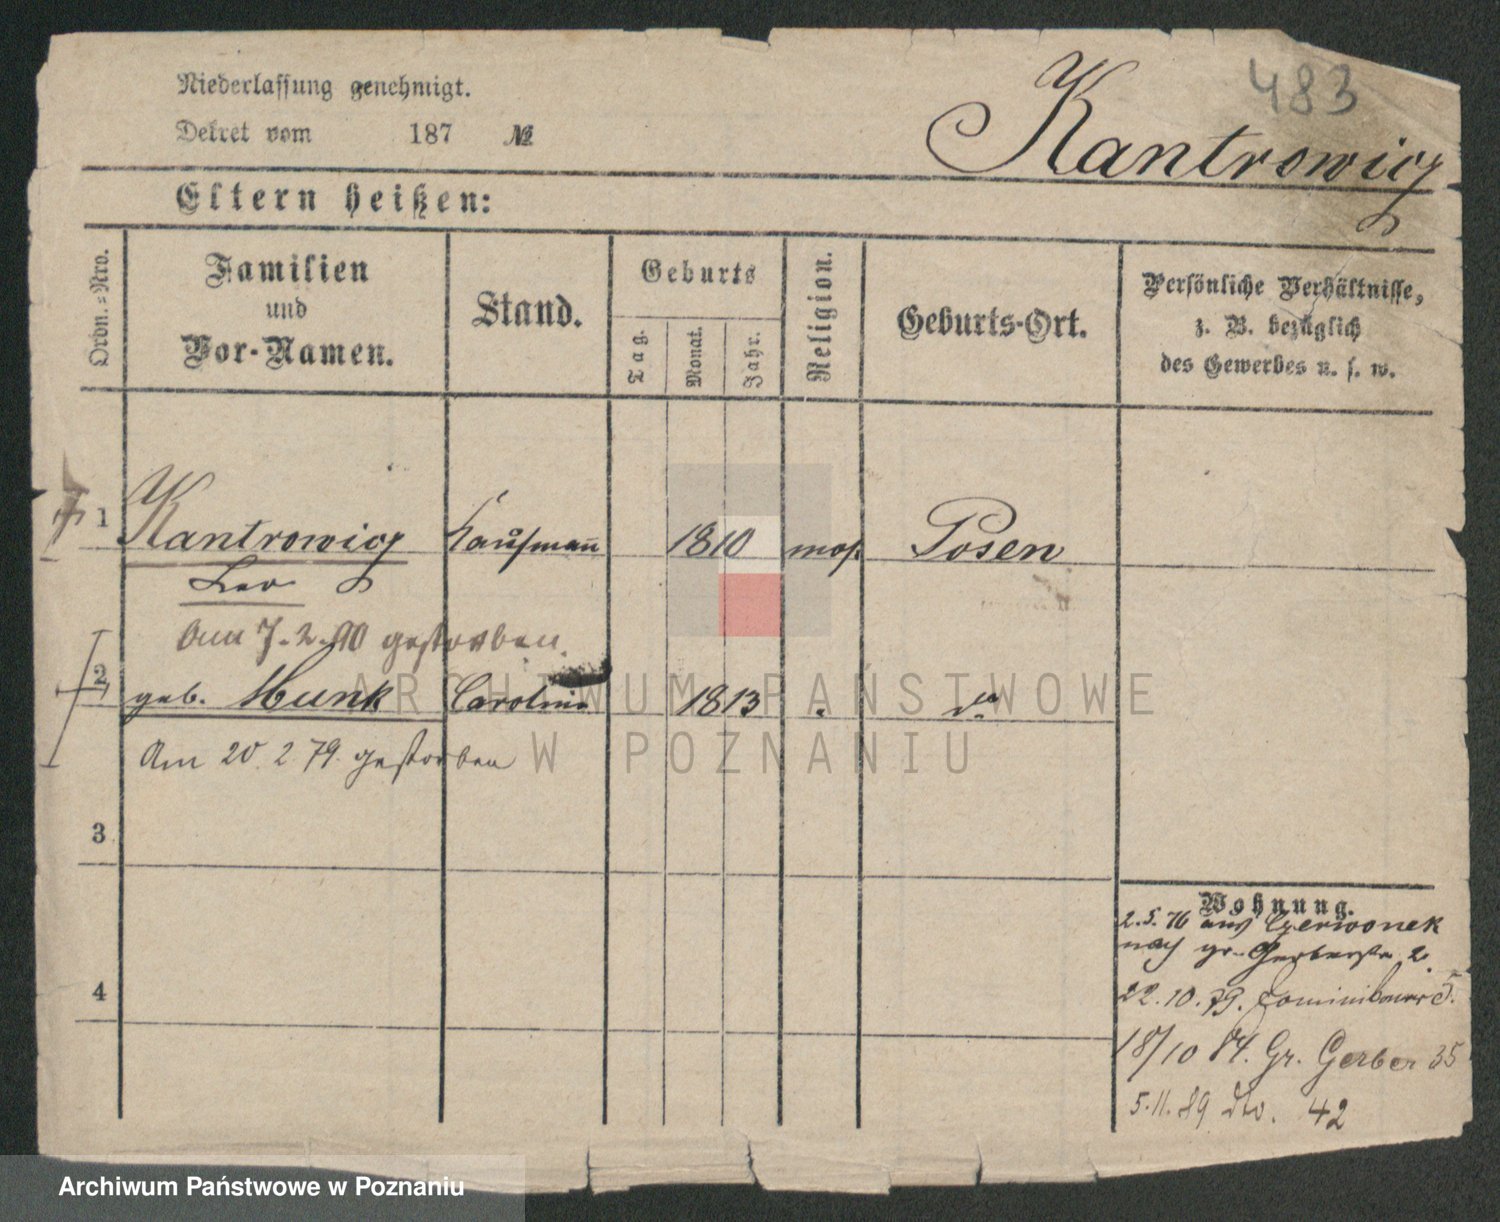 483
Niederlassung genehmigt.
Dekret vom 187 №
Kantrowicz
Eltern heißen:
Ordn.-Nro.
Familien
und
Vor-Namen.
Stand.
Geburts
Tag.
Monat.
Jahr.
Religion.
Geburts-Ort.
Persönliche Verhältnisse,
z. B. bezüglich
des Gewerbes u. s. w.
1 Kantrowicz Kaufmann 1810 mos. Posen
Leo
Am 7.2.90 gestorben.
2 geb. Munk Caroline 1813 do
Am 20.2.79. gestorben
3
4
Wohnung.
2.5.76 aus Czerwonek
nach gr. Gerberstr. 2.
22.10.79. 5.
18/10 84. Gr. Gerber 35
5.11.89 dto. 42
ARCHIWUM PAŃSTWOWE
W POZNANIU
Archiwum Państwowe w Poznaniu